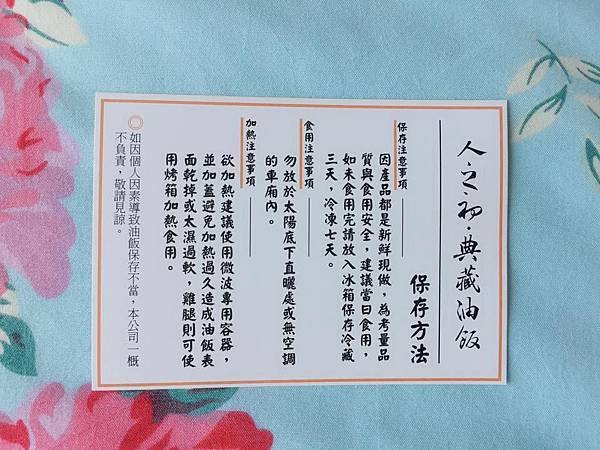 人之初·典藏油飯
保存方法
保存注意事項
因產品都是新鮮現做，為考量品
質與食用安全，建議當日食用，
如未食用完請放入冰箱保存冷藏
三天，冷凍七天。
食用注意事項
勿放於太陽底下直曬處或無空調
的車廂內。
加熱注意事項
欲加熱建議使用微波專用容器，
並加蓋避免加熱過久造成油飯表
面乾掉或太濕過軟，雞腿則可使
用烤箱加熱食用。
◎如因個人因素導致油飯保存不當，本公司一概
不負責，敬請見諒。